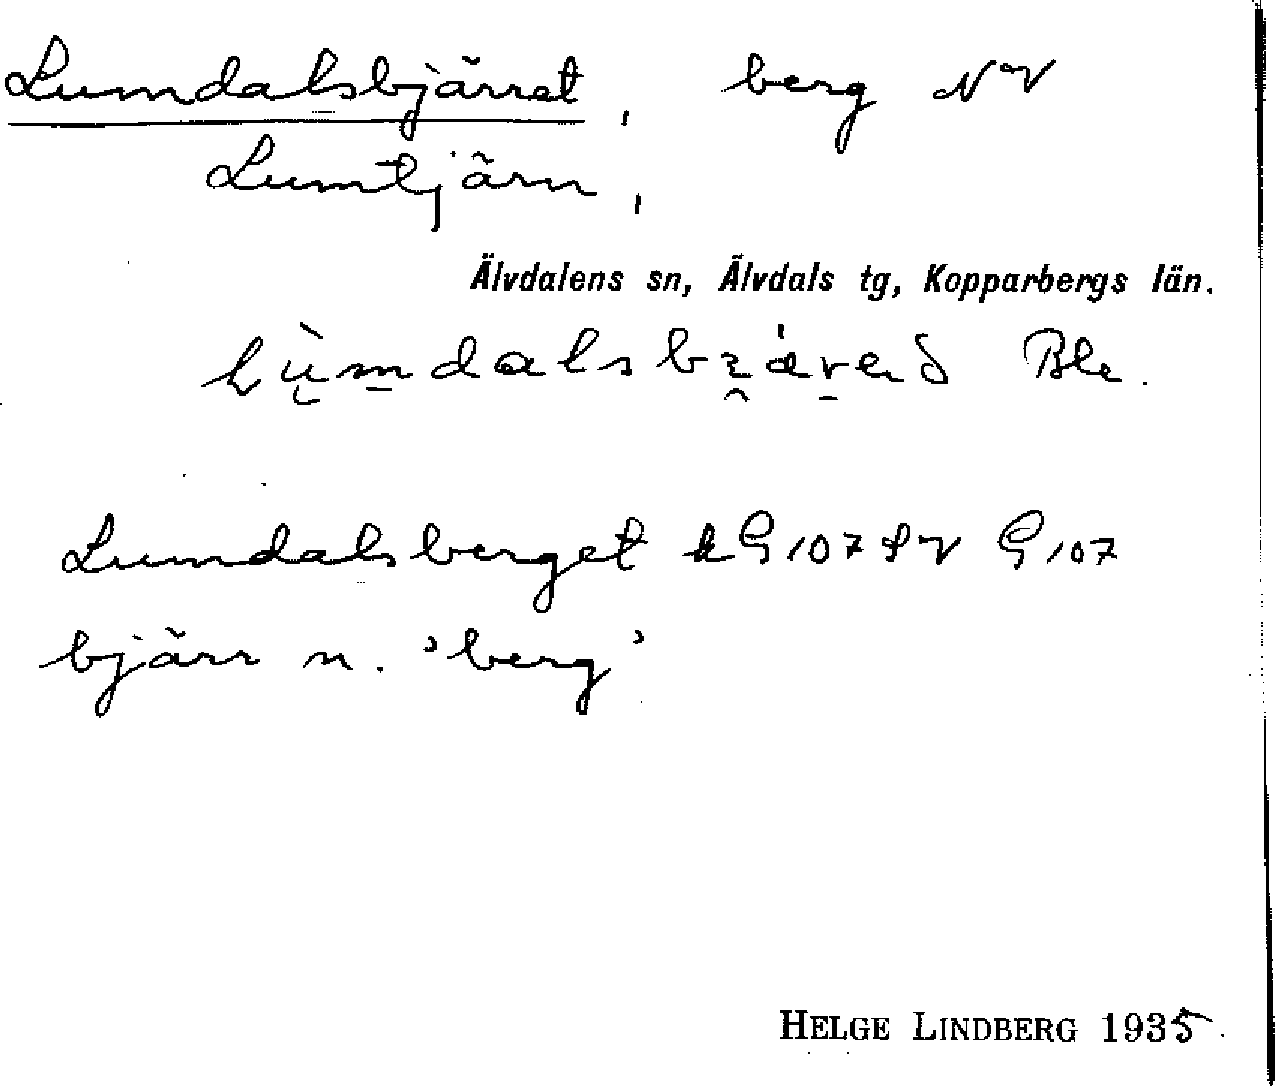 Lumdalsbjärret, berg NV
Lumtjärn,
Älvdalens sn, Älvdals tg, Kopparbergs län.
Ble.
Lumdalsberget kG107 SV G107
bjärr n. 'berg'
HELGE LINDBERG 1935.